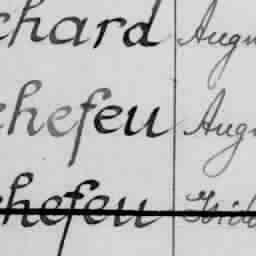 chard Augu
chefeu Augu
chefeu Isido